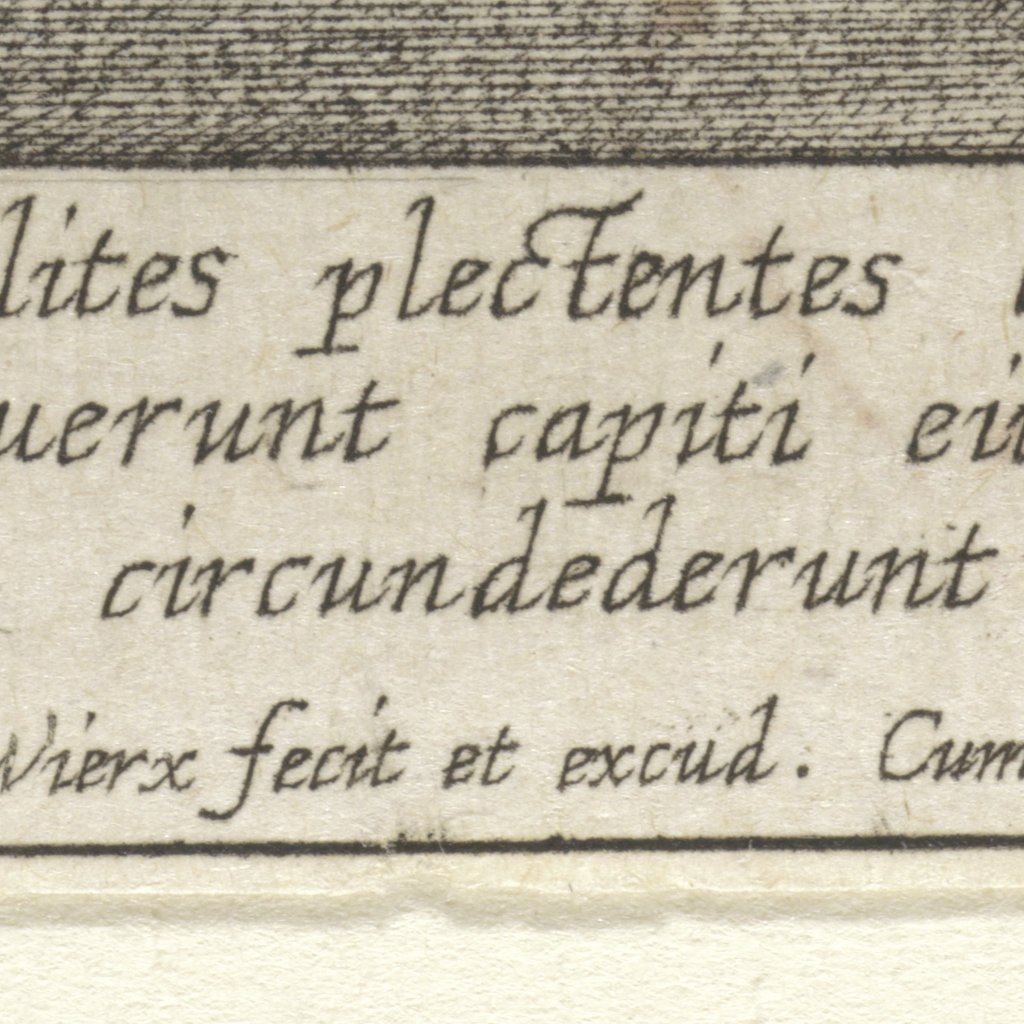 lites plectentes
uerunt capiti eiu
circundederunt
Vierx fecit et excud. Cum